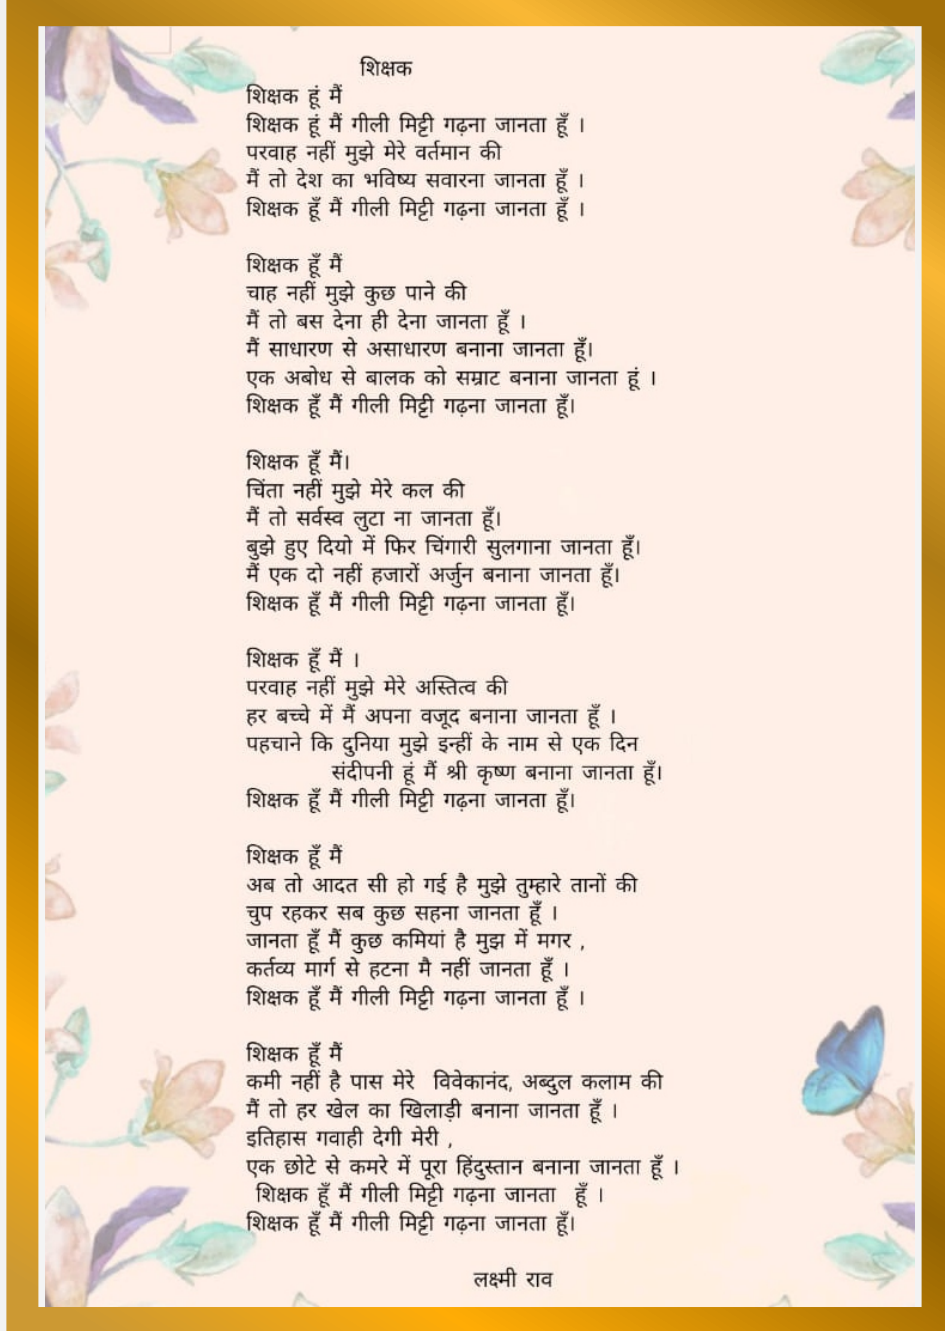 शिक्षक
शिक्षक हूं मैं
शिक्षक हूं मैं गीली मिट्टी गढ़ना जानता हूँ ।
परवाह नहीं मुझे मेरे वर्तमान की
मैं तो देश का भविष्य सवारना जानता हूँ ।
शिक्षक हूँ मैं गीली मिट्टी गढ़ना जानता हूँ ।
शिक्षक हूँ मैं
चाह नहीं मुझे कुछ पाने की
मैं तो बस देना ही देना जानता हूँ ।
मैं साधारण से असाधारण बनाना जानता हूँ।
एक अबोध से बालक को सम्राट बनाना जानता हूं ।
शिक्षक हूँ मैं गीली मिट्टी गढ़ना जानता हूँ।
शिक्षक हूँ मैं।
चिंता नहीं मुझे मेरे कल की
मैं तो सर्वस्व लुटा ना जानता हूँ।
बुझे हुए दियो में फिर चिंगारी सुलगाना जानता हूँ।
मैं एक दो नहीं हजारों अर्जुन बनाना जानता हूँ।
शिक्षक हूँ मैं गीली मिट्टी गढ़ना जानता हूँ।
शिक्षक हूँ मैं ।
परवाह नहीं मुझे मेरे अस्तित्व की
हर बच्चे में मैं अपना वजूद बनाना जानता हूँ ।
पहचाने कि दुनिया मुझे इन्हीं के नाम से एक दिन
संदीपनी हूं मैं श्री कृष्ण बनाना जानता हूँ।
शिक्षक हूँ मैं गीली मिट्टी गढ़ना जानता हूँ।
शिक्षक हूँ मैं
अब तो आदत सी हो गई है मुझे तुम्हारे तानों की
चुप रहकर सब कुछ सहना जानता हूँ ।
जानता हूँ मैं कुछ कमियां है मुझ में मगर ,
कर्तव्य मार्ग से हटना मै नहीं जानता हूँ ।
शिक्षक हूँ मैं गीली मिट्टी गढ़ना जानता हूँ ।
शिक्षक हूँ मैं
कमी नहीं है पास मेरे विवेकानंद, अब्दुल कलाम की
मैं तो हर खेल का खिलाड़ी बनाना जानता हूँ ।
इतिहास गवाही देगी मेरी ,
एक छोटे से कमरे में पूरा हिंदुस्तान बनाना जानता हूँ ।
शिक्षक हूँ मैं गीली मिट्टी गढ़ना जानता हूँ ।
शिक्षक हूँ मैं गीली मिट्टी गढ़ना जानता हूँ।
लक्ष्मी राव